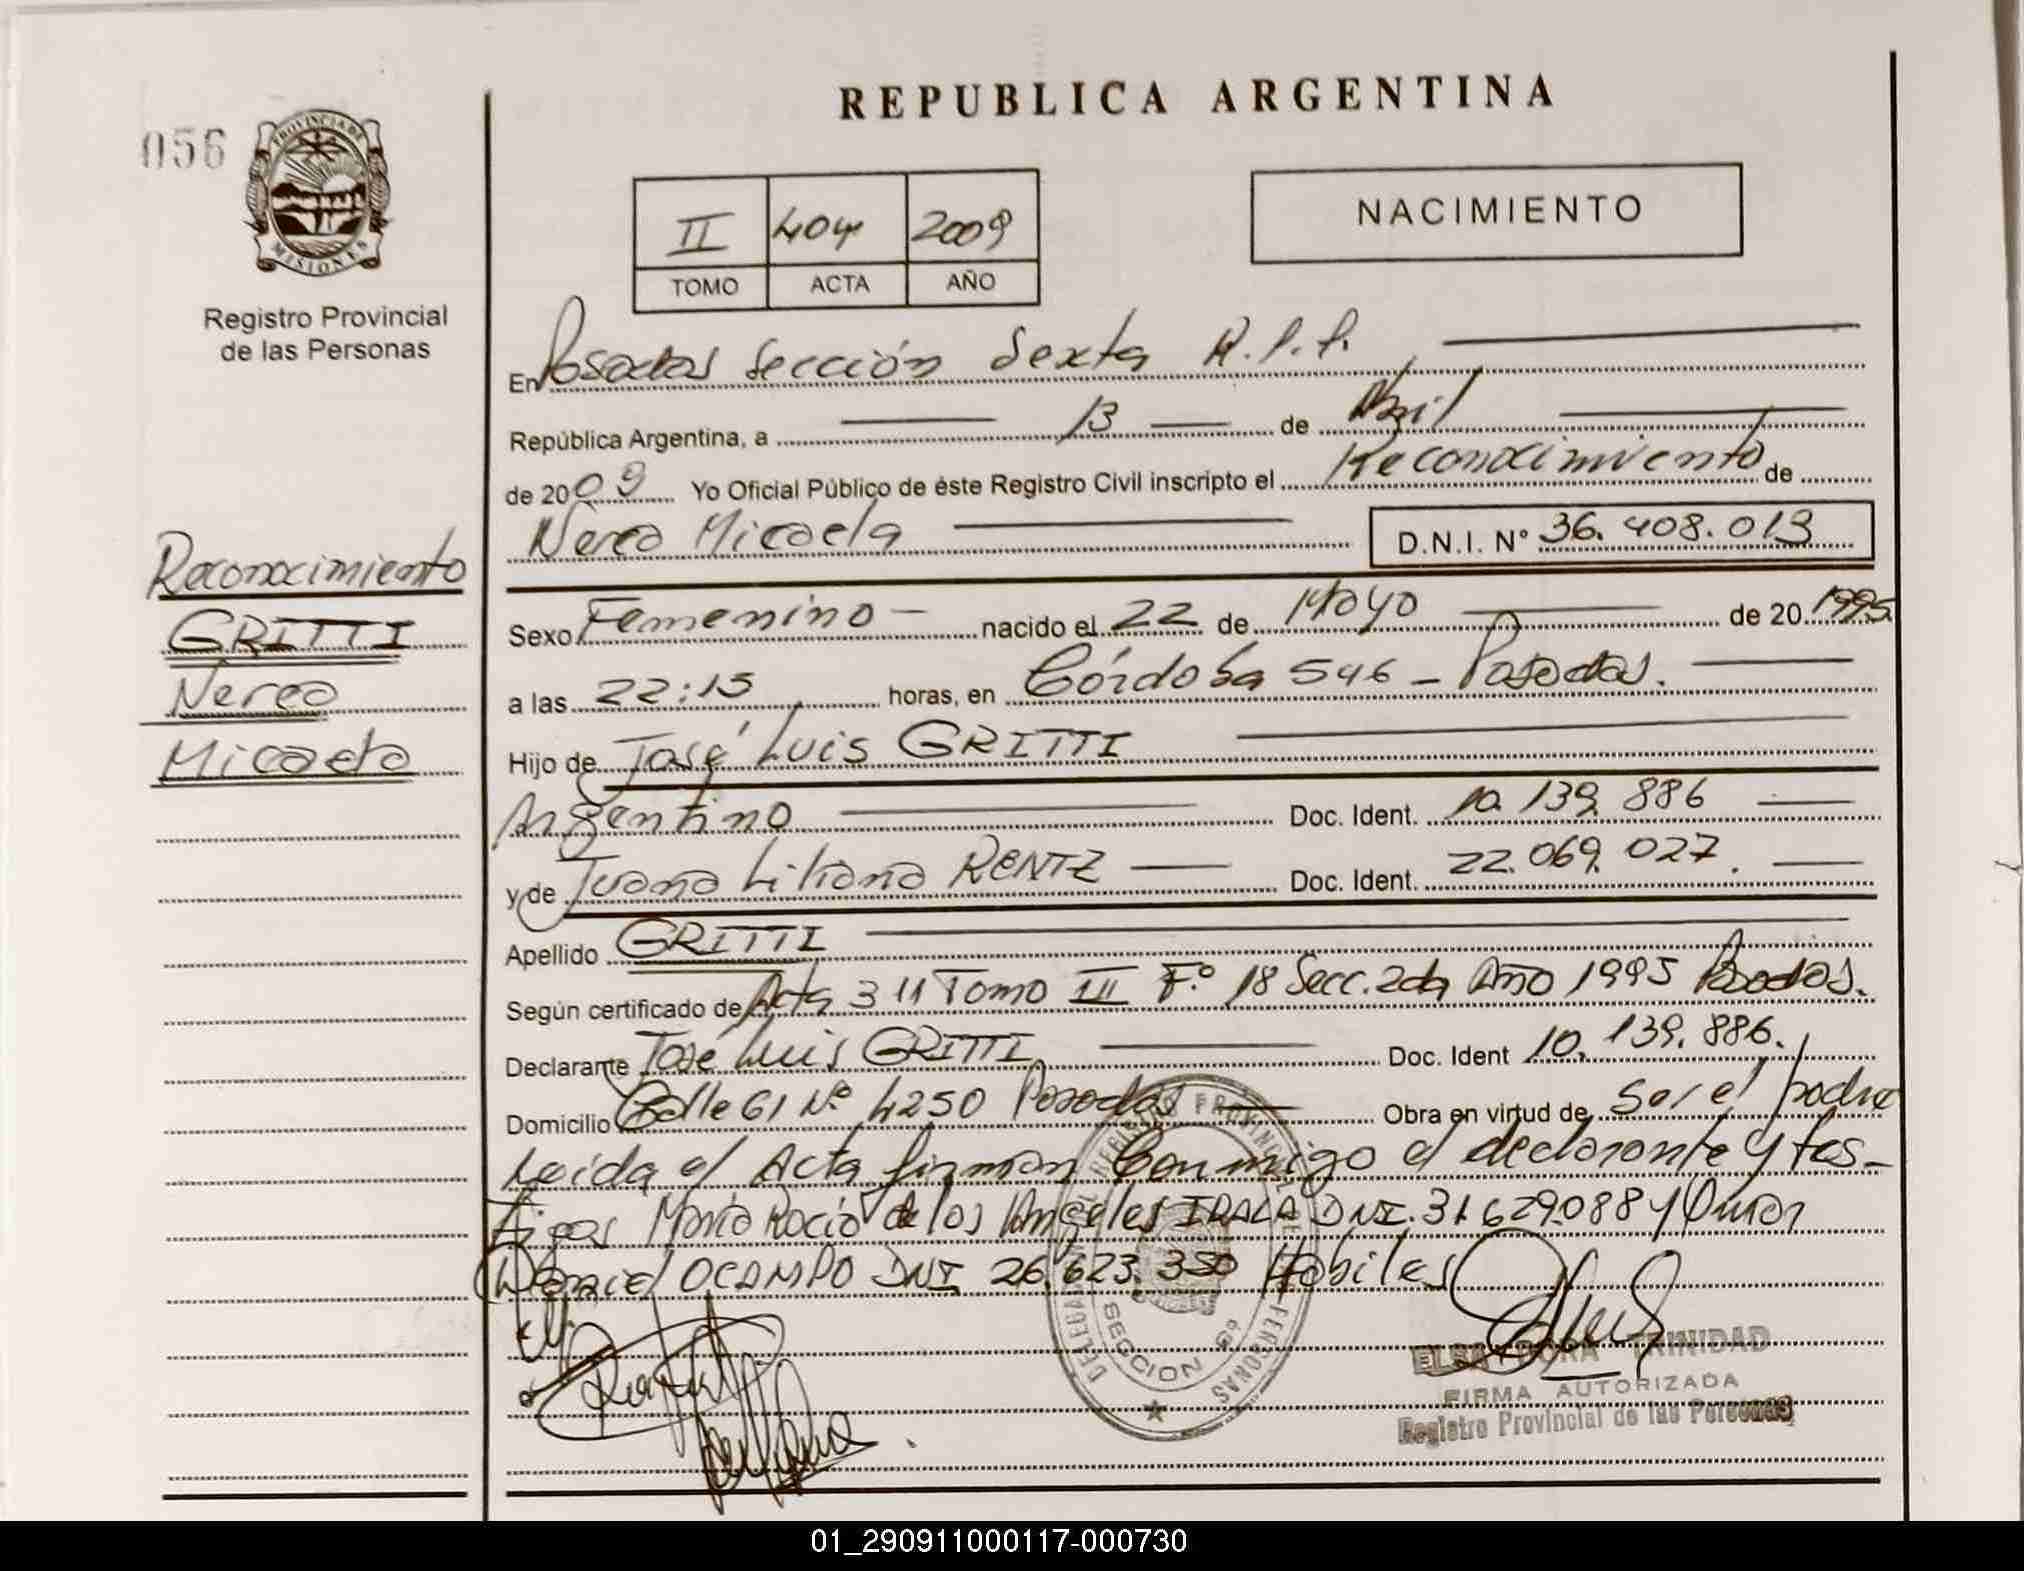 REPUBLICA ARGENTINA
056
PROVINCIA DE
MISIONES
Registro Provincial
de las Personas
II 404 2009
TOMO ACTA AÑO
NACIMIENTO
En Posadas Sección Sexta R.P.P.
República Argentina, a 13 de Abril
de 2009 Yo Oficial Público de éste Registro Civil inscripto el Reconocimiento de
Nerea Micaela D.N.I. N° 36.408.019
Reconocimiento
GRITTI
Nerea
Micaela
Sexo Femenino nacido el 22 de Mayo de 20 1995
a las 22:15 horas, en Córdoba 546 - Posadas.
Hijo de José Luis GRITTI
Argentino Doc. Ident. 10.139.886
y de Juana Liliana RENTZ Doc. Ident. 22.069.027.
Apellido GRITTI
Según certificado de Acta 311 Tomo III F° 18 Secc. 2da Año 1995 Posadas.
Declarante José Luis GRITTI Doc. Ident 10.139.886.
Domicilio Calle 61 N° 4250 Posadas Obra en virtud de Ser el padre
Leída el Acta firman Conmigo el declarante y tes-
tigos María Rocío de los Angeles IRALA DNI. 31.629.088 y Omar
Daniel OCAMPO DNI 26.623.350 Hábiles
SECCION 6ª
ELSA TRINIDAD
FIRMA AUTORIZADA
Registro Provincial de las Personas
01_290911000117-000730